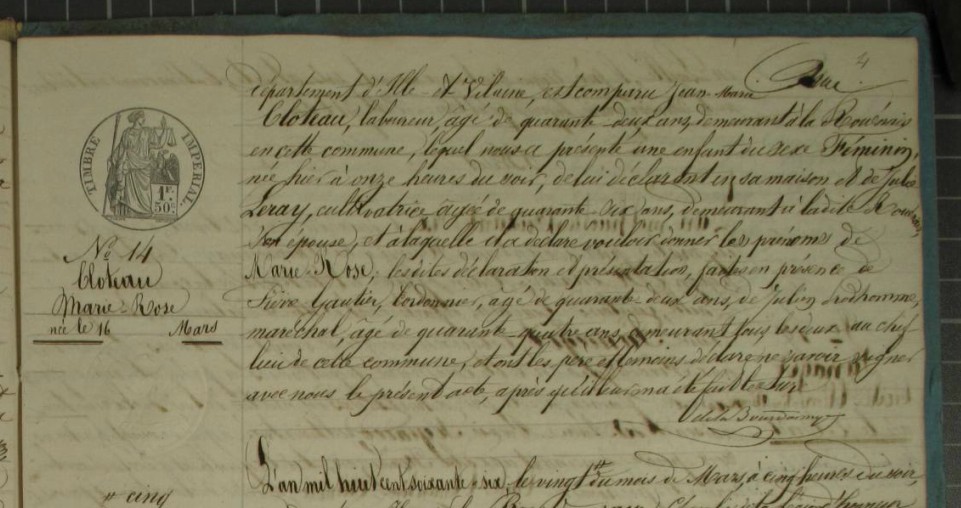 4
TIMBRE IMPERIAL
1F.
50c.
Département d'Ille-et-Vilaine, est comparu Jean-Marie
Cloteau, laboureur, âgé de quarante-deux ans, demeurant à la
en cette commune, lequel nous a présenté une enfant du sexe Féminin,
née hier à onze heures du soir, de lui déclarant en sa maison et de Julie
Leray, cultivatrice, âgée de quarante-six ans, demeurant à ladite
son épouse, et à laquelle il a déclaré vouloir donner les prénoms de
Marie-Rose; lesdites déclaration et présentation, faites en présence de
Pierre Gautier, cordonnier, âgé de quarante-deux ans, de Julien Prodhomme,
maréchal, âgé de quarante-quatre ans, demeurant tous les deux au chef-
lieu de cette commune, et ont les père et témoins déclaré ne savoir signer
avec nous le présent acte, après qu'il leur en a été fait lecture
No 14
Cloteau
Marie-Rose
née le 16 Mars
L'an mil huit cent soixante-six, le vingt du mois de Mars, à cinq heures du soir,
cinq